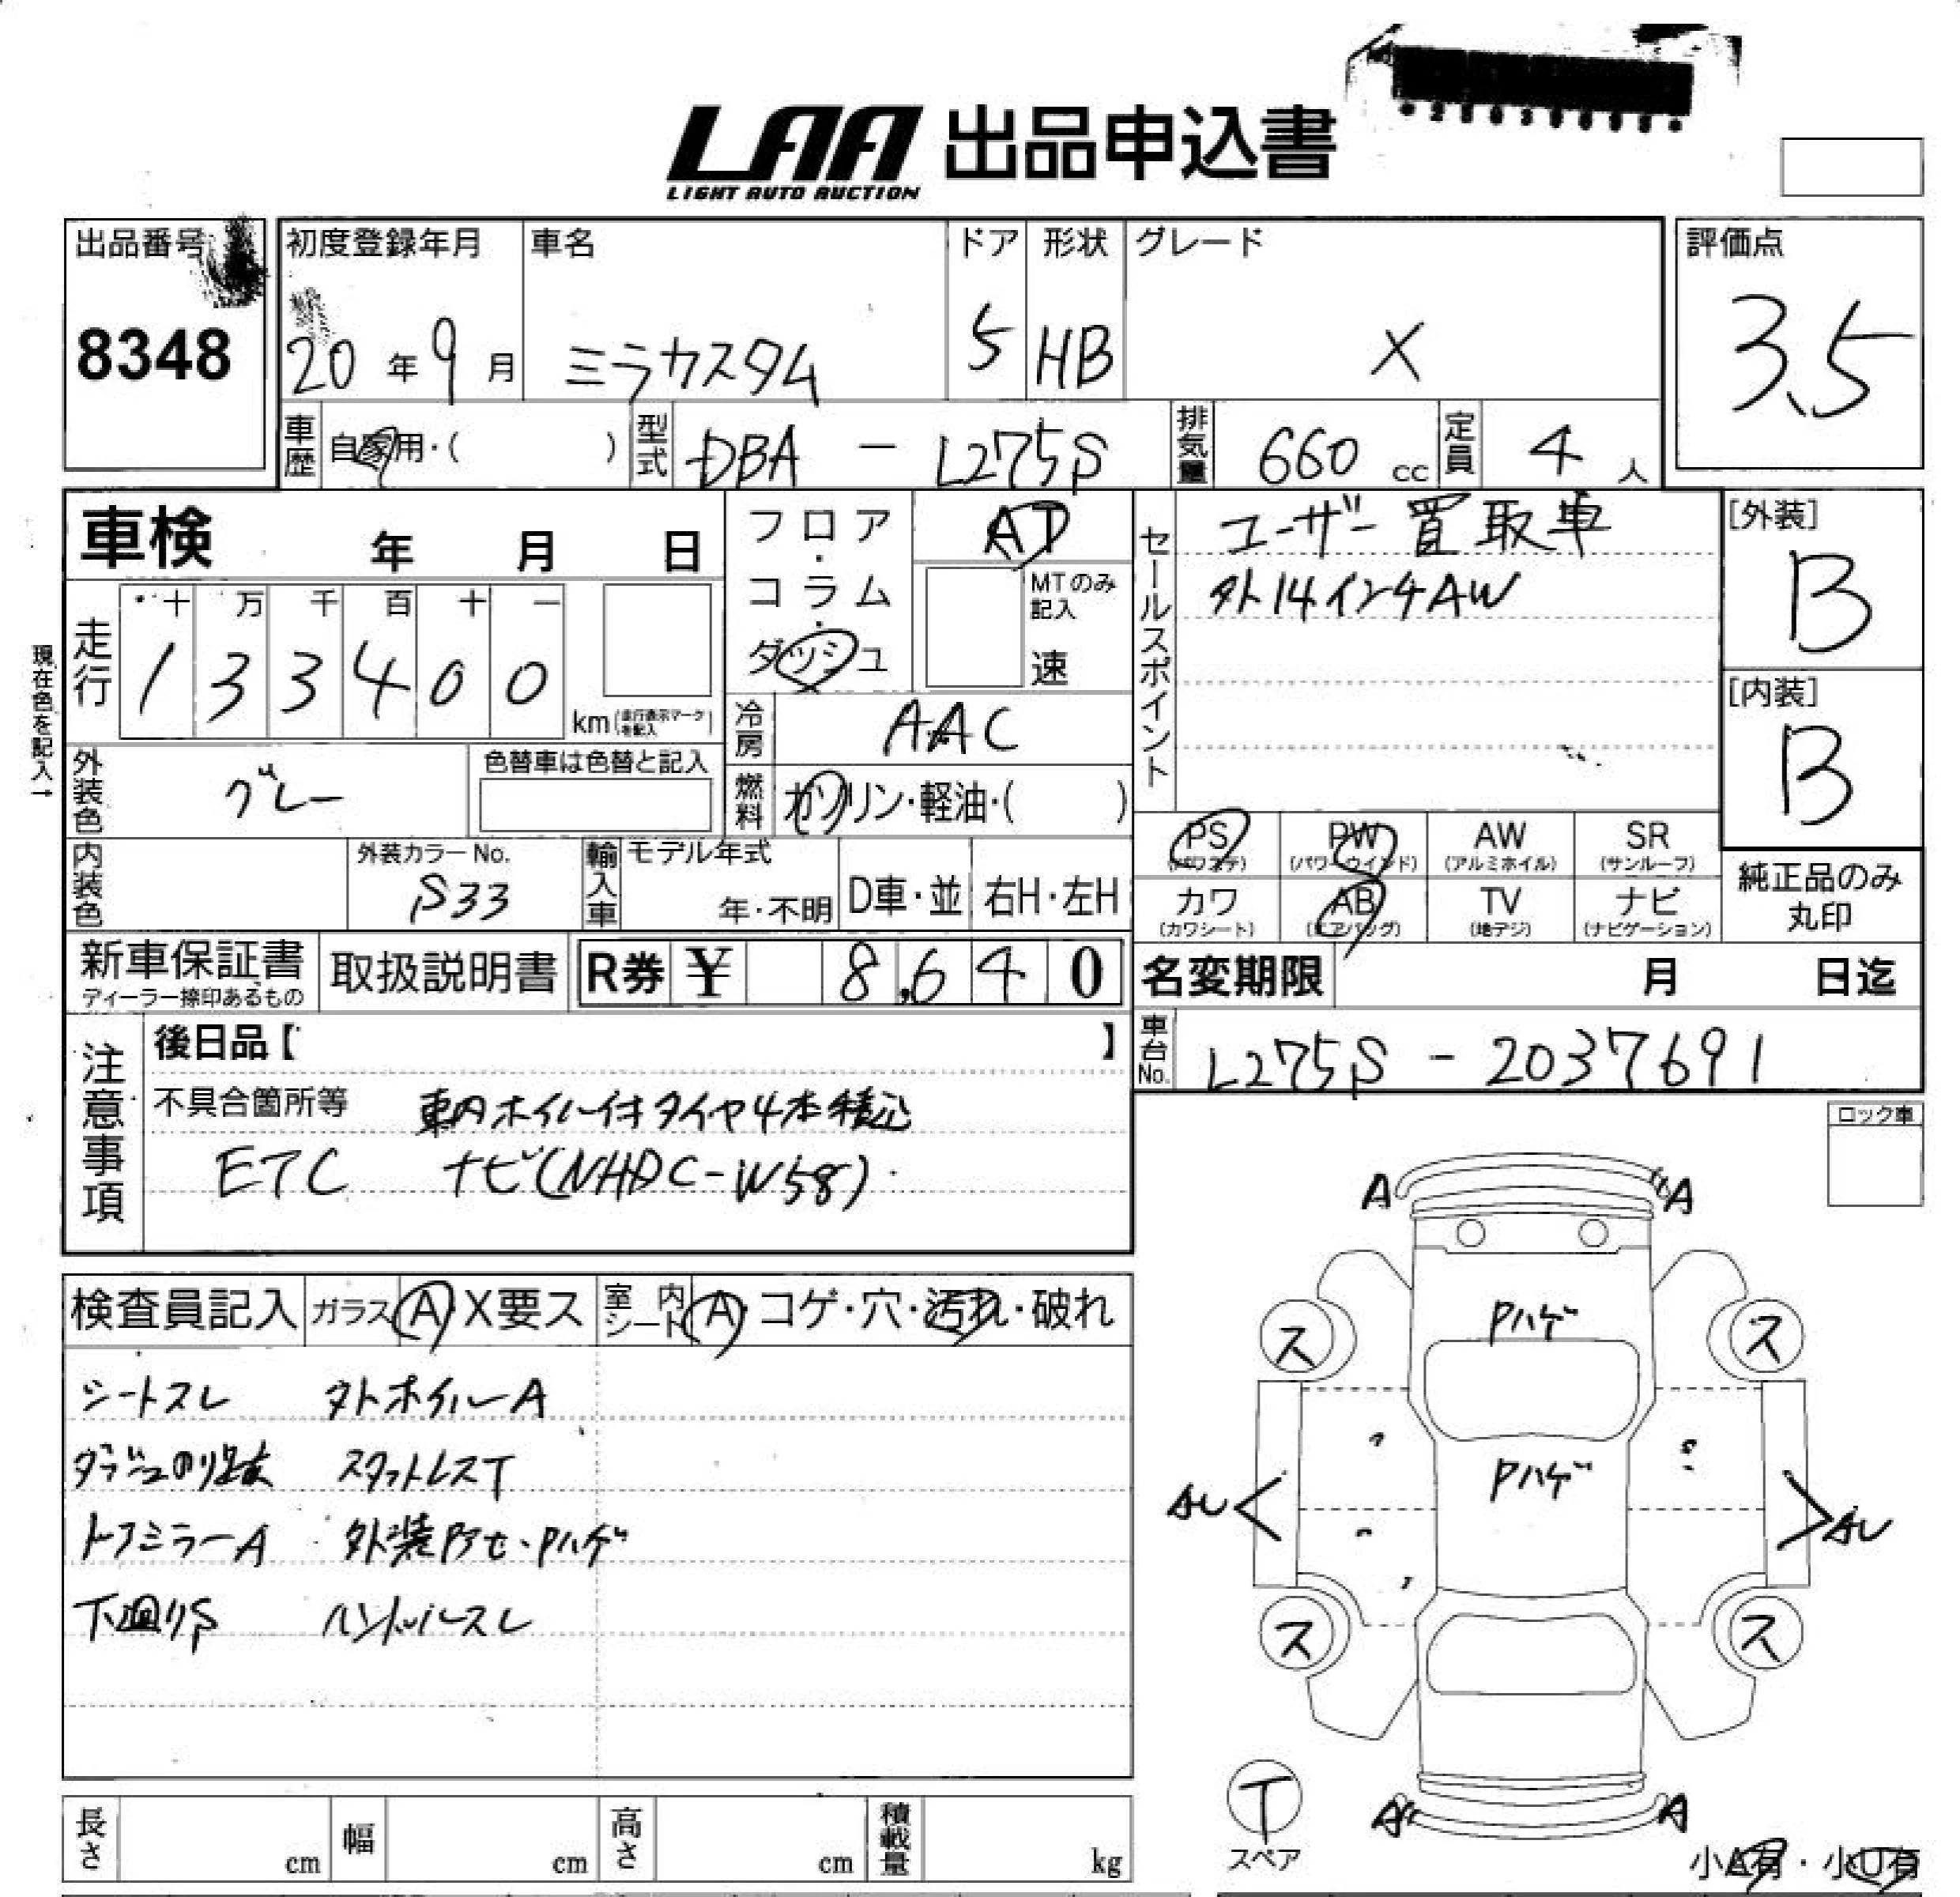 LAA 出品申込書
LIGHT AUTO AUCTION
出品番号
8348
初度登録年月
20年9月
車名
ミラカスタム
ドア
5
形状
HB
グレード
X
評価点
3.5
車歴
自家用・( )
型式
DBA - L275S
排気量
660 cc
定員
4人
車検 年 月 日
走行
十 万 千 百 十 一
1 3 3 4 0 0
km(走行表示マークを記入)
現在色を記入→
フロア・コラム・ダッシュ
AT
MTのみ記入
速
冷房
AAC
燃料
ガソリン・軽油・( )
セールスポイント
ユーザー買取車
外14インチAW
[外装]
B
[内装]
B
外装色
グレー
色替車は色替と記入
内装色
外装カラーNo.
S33
輸入車
モデル年式
年・不明
D車・並
右H・左H
PS
(パワステ)
PW
(パワーウインド)
AW
(アルミホイル)
SR
(サンルーフ)
カワ
(カワシート)
AB
(エアバッグ)
TV
(地デジ)
ナビ
(ナビゲーション)
純正品のみ
丸印
新車保証書
ディーラー捺印あるもの
取扱説明書
R券 ¥ 8,640
名変期限 月 日迄
車台No.
L275S - 2037691
注意事項
後日品【 】
不具合箇所等 車内ホイル付タイヤ4本積込
ETC ナビ(NHDC-W58)
ロック車
検査員記入
ガラス A・X要ス
室内シート A・コゲ・穴・汚れ・破れ
シートスレ 外ホイルーA
ダッシュのり跡 スタットレスT
ドアミラーA 外装Pアセ・Pハゲ
下廻りS ハンドルスレ
A A
Pハゲ
ス ス
Pハゲ
AU AU
ス ス
T
スペア
A A
小A有・小U有
長さ cm
幅 cm
高さ cm
積載量 kg